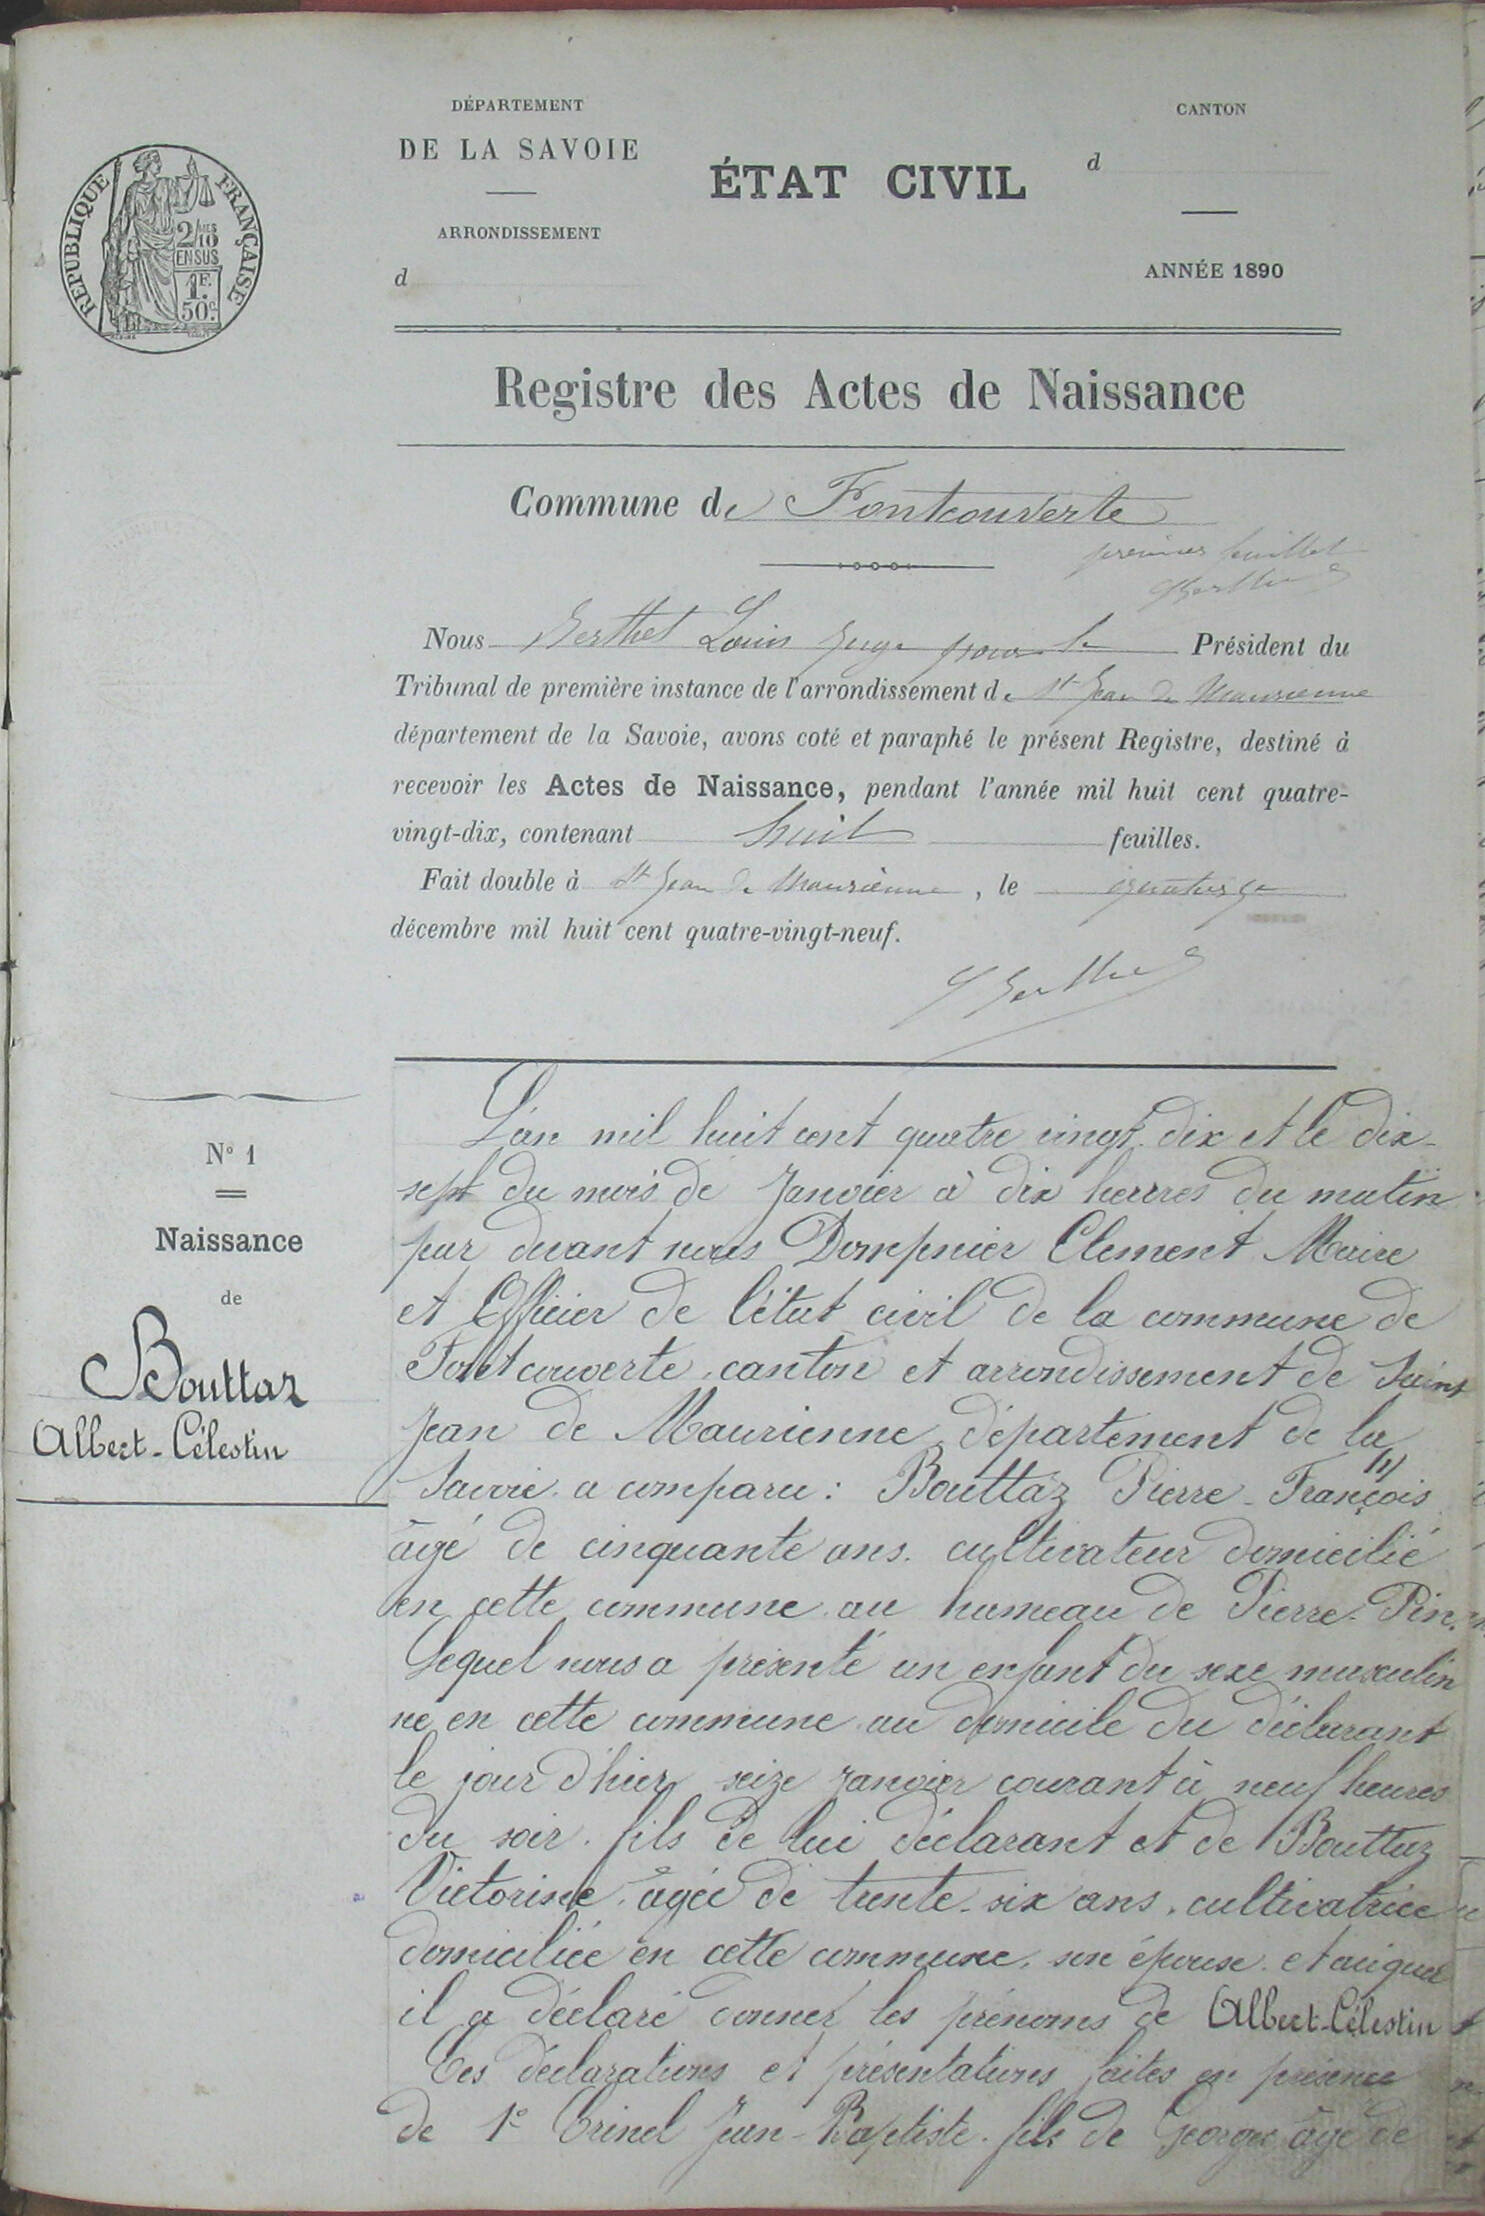 DÉPARTEMENT
DE LA SAVOIE
ARRONDISSEMENT
d
ÉTAT CIVIL
CANTON
d
ANNÉE 1890
RÉPUBLIQUE FRANÇAISE
2/10 MES
EN SUS
1F.
50C.
Registre des Actes de Naissance
Commune de Fontcouverte
premier feuillet
Nous Berthet Louis Juge pour le Président du
Tribunal de première instance de l'arrondissement de St Jean de Maurienne
département de la Savoie, avons coté et paraphé le présent Registre, destiné à
recevoir les Actes de Naissance, pendant l'année mil huit cent quatre-
vingt-dix, contenant huit feuilles.
Fait double à St Jean de Maurienne, le quatorze
décembre mil huit cent quatre-vingt-neuf.
L Berthet
N° 1
Naissance
de
Bouttaz
Albert-Célestin
L'an mil huit cent quatre vingt dix et le dix-
sept du mois de Janvier à dix heures du matin
par devant nous Dompnier Clement Maire
et Officier de l'état civil de la commune de
Fontcouverte, canton et arrondissement de Saint
Jean de Maurienne, département de la
Savoie. a comparu : Bouttaz Pierre-François
âgé de cinquante ans. cultivateur domicilié
en cette commune au hameau de Pierre-Pin.
Lequel nous a présenté un enfant du sexe masculin
né en cette commune au domicile du déclarant
le jour d'hier, seize Janvier courant à neuf heures
du soir. fils de lui déclarant et de Bouttaz
Victorine, âgée de trente-six ans, cultivatrice
domiciliée en cette commune, son épouse. et auquel
il a déclaré donner les prénoms de Albert-Célestin
Ces déclarations et présentations faites en présence
de 1° Crinel Jean-Baptiste. fils de Georges âgé de